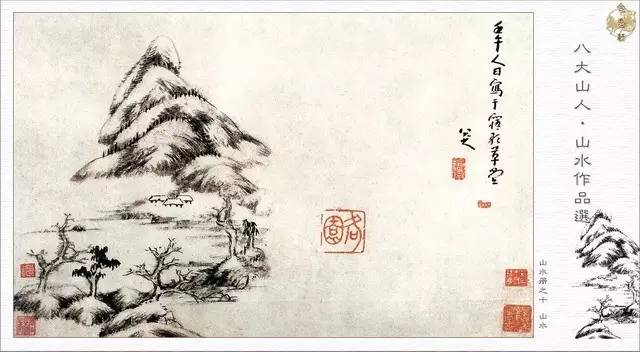 八大山人·山水作品選
壬午人日寫于寤歌草堂
八大
山水册之十 山水